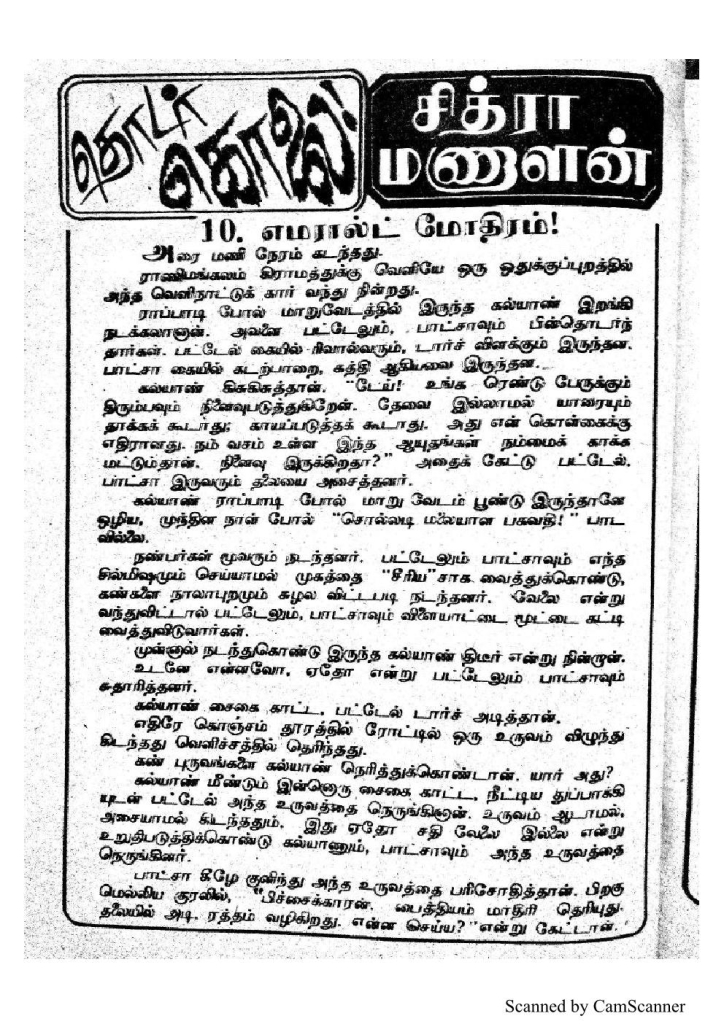 தொடர்
கொலை!
சித்ரா
மணாளன்
10. எமரால்ட் மோதிரம்!
அரை மணி நேரம் கடந்தது.
ராணிமங்கலம் கிராமத்துக்கு வெளியே ஒரு ஒதுக்குப்புறத்தில்
அந்த வெளிநாட்டுக் கார் வந்து நின்றது.
ராப்பாடி போல் மாறுவேடத்தில் இருந்த கல்யாண் இறங்கி
நடக்கலானான். அவனை பட்டேலும், பாட்சாவும் பின்தொடர்ந்
தார்கள். பட்டேல் கையில் ரிவால்வரும், டார்ச் விளக்கும் இருந்தன.
பாட்சா கையில் கடற்பாறை, கத்தி ஆகியவை இருந்தன.
கல்யாண் கிசுகிசுத்தான். "டேய்! உங்க ரெண்டு பேருக்கும்
திரும்பவும் நினைவுபடுத்துகிறேன். தேவை இல்லாமல் யாரையும்
தாக்கக் கூடாது; காயப்படுத்தக் கூடாது. அது என் கொள்கைக்கு
எதிரானது. நம் வசம் உள்ள இந்த ஆயுதங்கள் நம்மைக் காக்க
மட்டும்தான். நினைவு இருக்கிறதா?" அதைக் கேட்டு பட்டேல்,
பாட்சா இருவரும் தலையை அசைத்தனர்.
கல்யாண் ராப்பாடி போல் மாறு வேடம் பூண்டு இருந்தானே
ஒழிய, முந்தின நாள் போல் "சொல்லடி மலையாள பகவதி!" பாட
வில்லை.
நண்பர்கள் மூவரும் நடந்தனர். பட்டேலும் பாட்சாவும் எந்த
சில்மிஷமும் செய்யாமல் முகத்தை "சீரிய"சாக வைத்துக்கொண்டு,
கண்களை நாலாபுறமும் சுழல விட்டபடி நடந்தனர். வேலை என்று
வந்துவிட்டால் பட்டேலும், பாட்சாவும் விளையாட்டை மூட்டை கட்டி
வைத்துவிடுவார்கள்.
முன்னால் நடந்துகொண்டு இருந்த கல்யாண் திடீர் என்று நின்றான்.
உடனே என்னவோ, ஏதோ என்று பட்டேலும் பாட்சாவும்
சுதாரித்தனர்.
கல்யாண் சைகை காட்ட, பட்டேல் டார்ச் அடித்தான்.
எதிரே கொஞ்சம் தூரத்தில் ரோட்டில் ஒரு உருவம் விழுந்து
கிடந்தது வெளிச்சத்தில் தெரிந்தது.
கண் புருவங்களை கல்யாண் நெரித்துக்கொண்டான். யார் அது?
கல்யாண் மீண்டும் இன்னொரு சைகை காட்ட, நீட்டிய துப்பாக்கி
யுடன் பட்டேல் அந்த உருவத்தை நெருங்கினான். உருவம் ஆடாமல்,
அசையாமல் கிடந்ததும், இது ஏதோ சதி வேலை இல்லை என்று
உறுதிபடுத்திக்கொண்டு கல்யாணும், பாட்சாவும் அந்த உருவத்தை
நெருங்கினர்.
பாட்சா கீழே குனிந்து அந்த உருவத்தை பரிசோதித்தான். பிறகு
மெல்லிய குரலில், "பிச்சைக்காரன். பைத்தியம் மாதிரி தெரியுது.
தலையில் அடி. ரத்தம் வழிகிறது. என்ன செய்ய?" என்று கேட்டான்.
Scanned by CamScanner